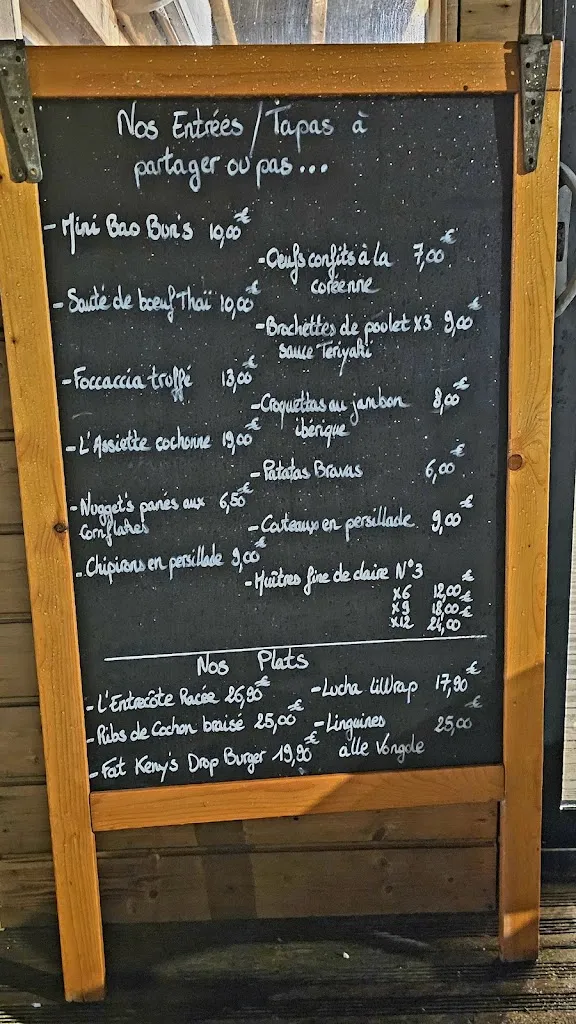 Nos Entrées / Tapas à
partager ou pas...
- Mini Bao Bun's 10,00€
- Oeufs confits à la 7,00€
coréenne
- Sauté de boeuf Thaï 10,00€
- Brochettes de poulet x3 9,00€
sauce Teriyaki
- Foccaccia truffé 13,00€
- Croquettas au jambon 8,00€
ibérique
- L'Assiette cochonne 19,00€
- Patatas Bravas 6,00€
- Nugget's panés aux 6,50€
Cornflakes
- Couteaux en persillade 9,00€
- Chipirons en persillade 9,00€
- Huîtres fine de claire N°3
x6 12,00€
x9 18,00€
x12 24,00€
Nos Plats
- L'Entrecôte Racée 26,90€
- Lucha LiWrap 17,90€
- Ribs de Cochon braisé 25,00€
- Linguines 25,00€
alle Vongole
- Fat Keny's Drop Burger 19,90€